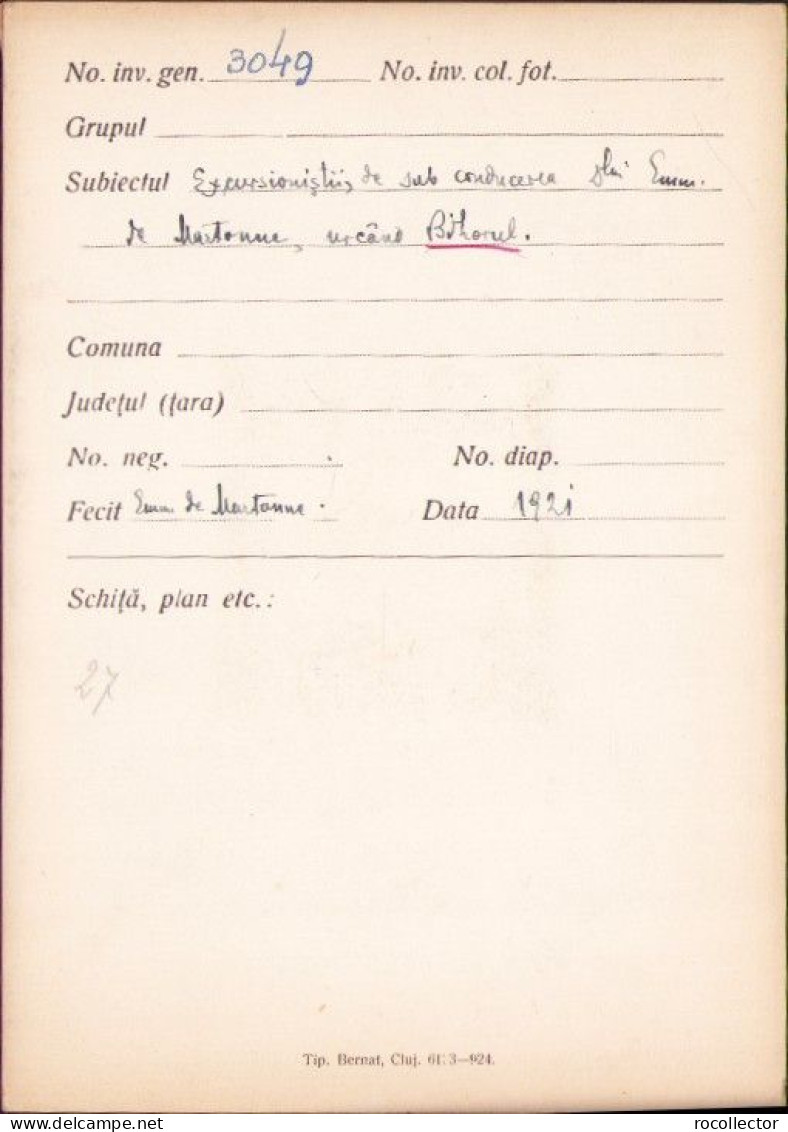 No. inv. gen. 3049 No. inv. col. fot.
Grupul
Subiectul Excursioniştii, de sub conducerea dlui Emm.
de Martonne, urcând Bihorul.
Comuna
Judeţul (ţara)
No. neg. No. diap.
Fecit Emm. de Martonne. Data 1921
Schiţă, plan etc.:
27
Tip. Bernat, Cluj. 613—924.
delcampe.net
rocollector